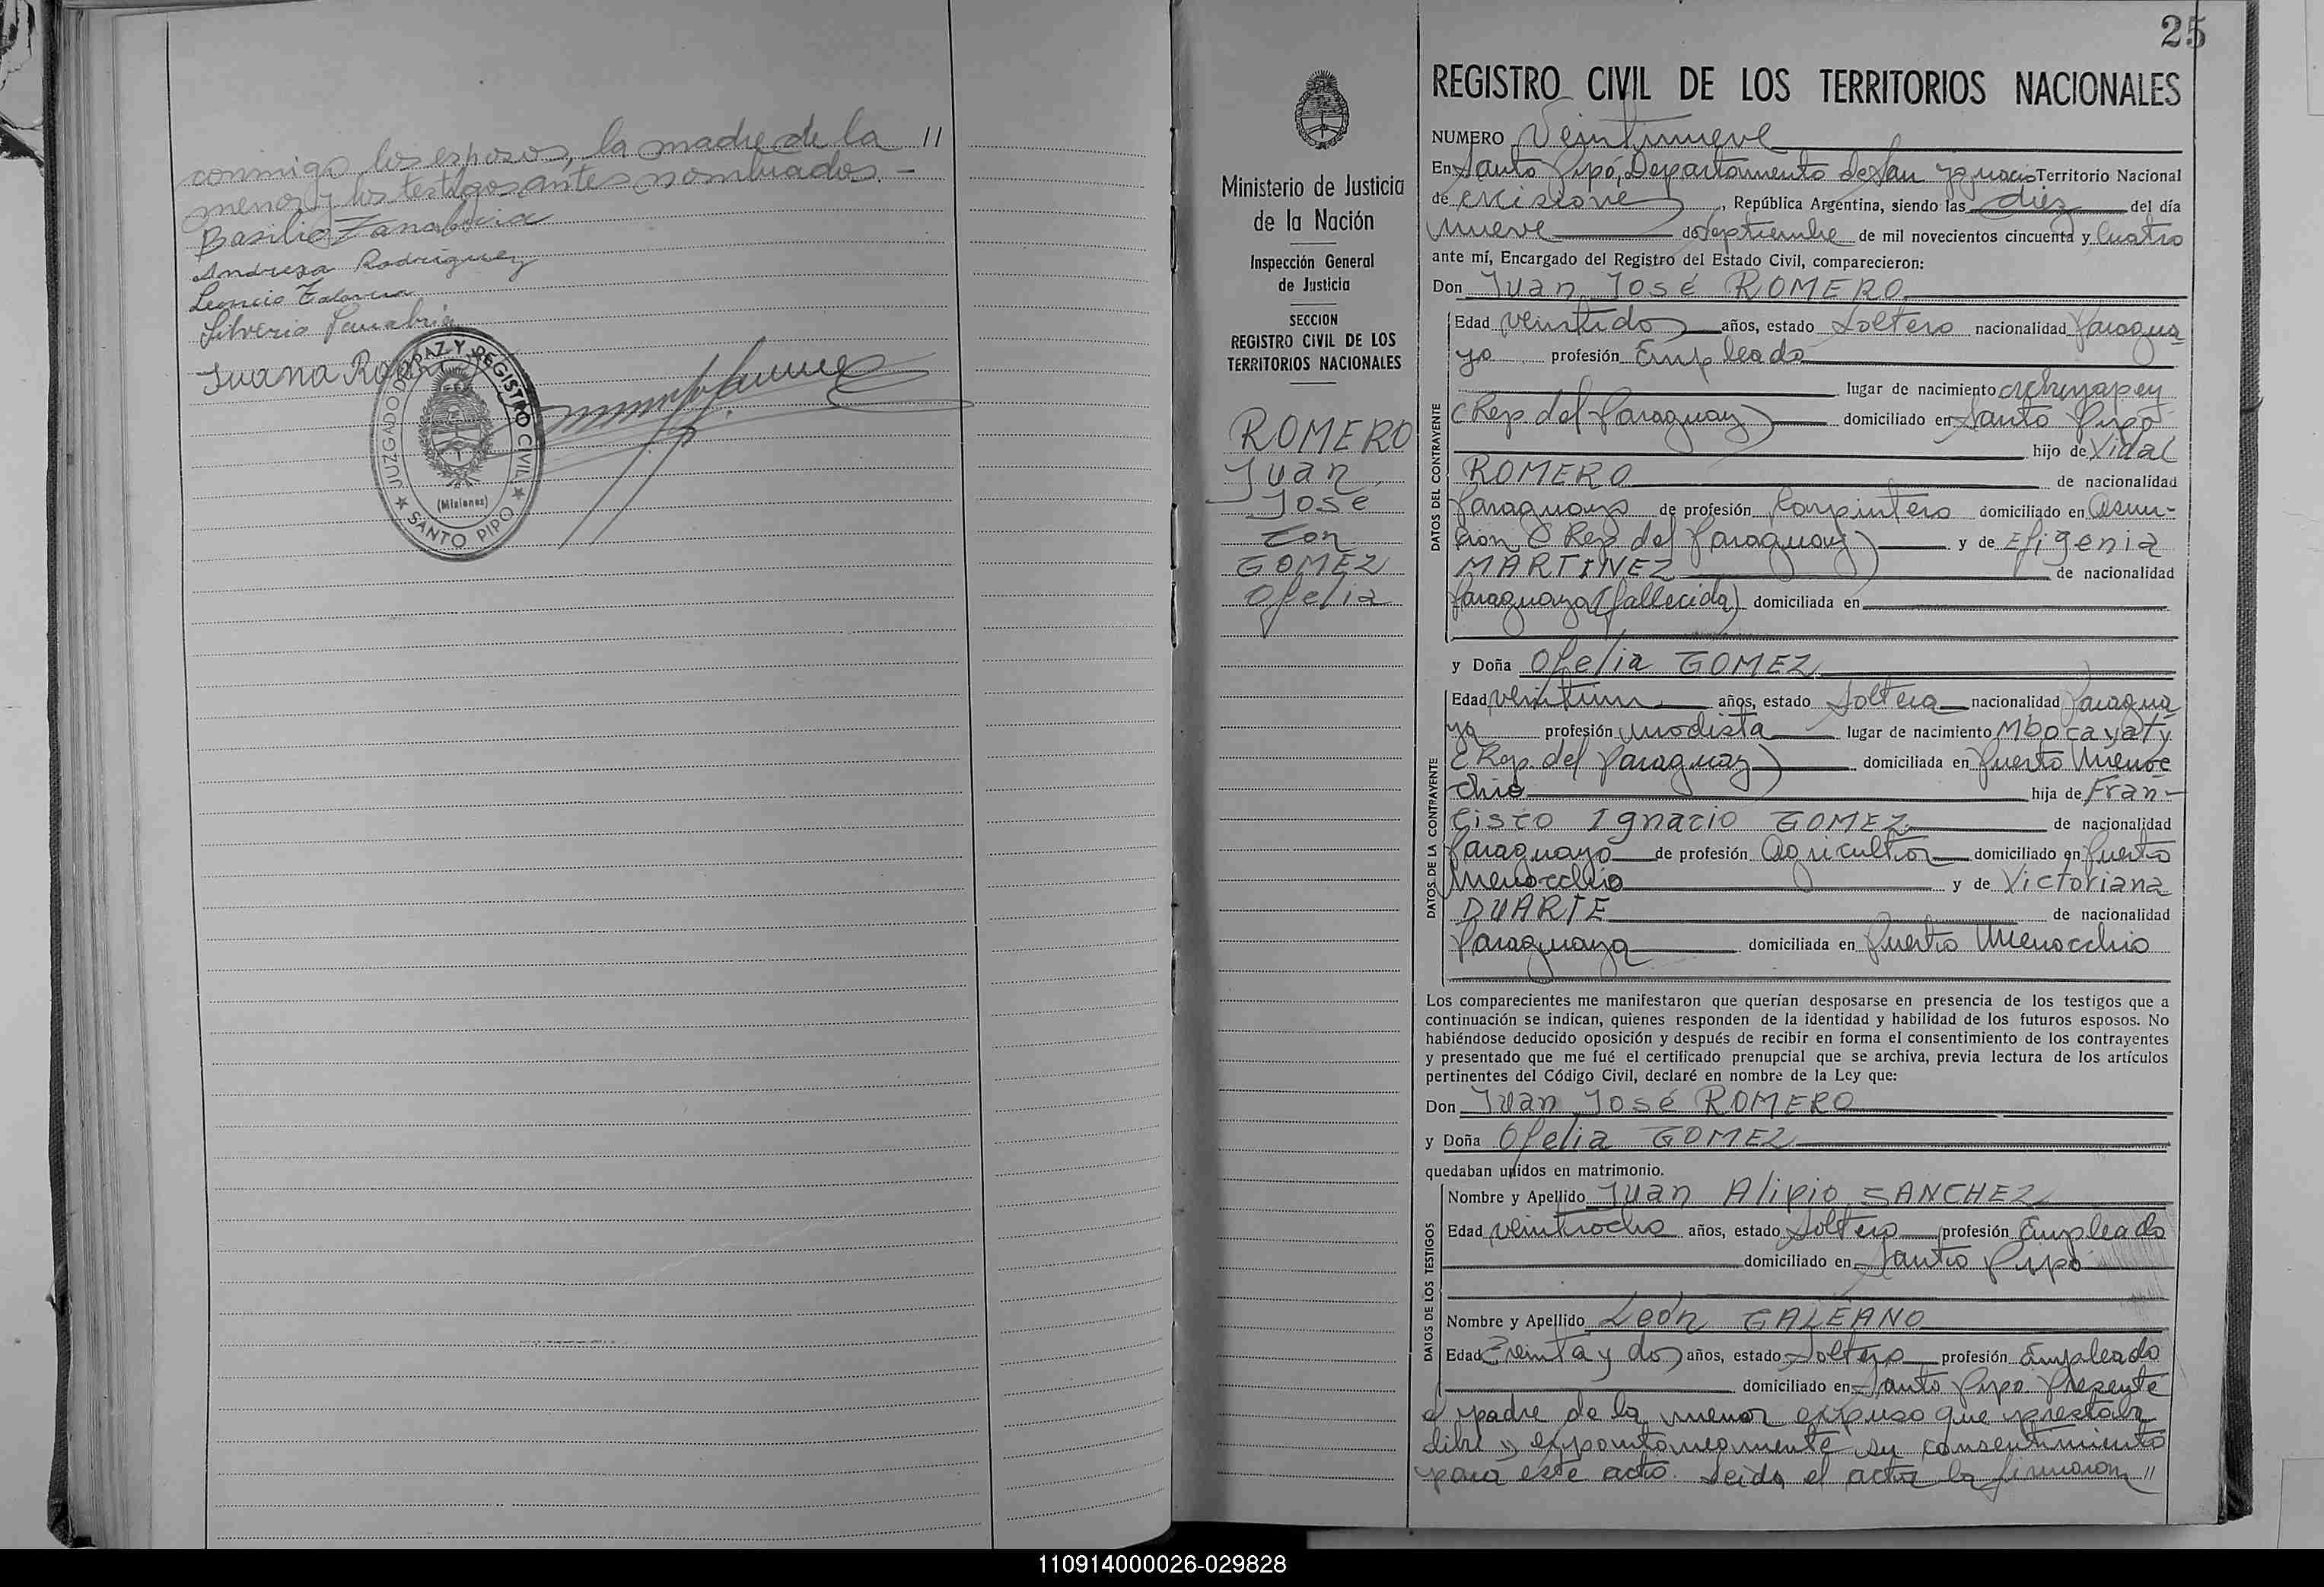 conmigo los esposos, la madre de la //
menor y los testigos antes nombrados. -
Basilio Zanabria
Andresa Rodriguez
Leoncio Talavera
Silverio Sanabria
Juana
JUZGADO DE PAZ Y REGISTRO CIVIL
(Misiones)
SANTO PIPO
25
Ministerio de Justicia
de la Nación
Inspección General
de Justicia
SECCION
REGISTRO CIVIL DE LOS
TERRITORIOS NACIONALES
ROMERO
Juan
José
con
GOMEZ
Ofelia
REGISTRO CIVIL DE LOS TERRITORIOS NACIONALES
NUMERO Veintinueve
En Santo Pipó, Departamento de San Ignacio Territorio Nacional
de Misiones, República Argentina, siendo las diez del día
nueve de Septiembre de mil novecientos cincuenta y Cuatro
ante mí, Encargado del Registro del Estado Civil, comparecieron:
Don Juan José ROMERO
DATOS DEL CONTRAYENTE
Edad veintidos años, estado Soltero nacionalidad Paragua
yo profesión Empleado
lugar de nacimiento
(Rep. del Paraguay) domiciliado en Santo Pipó
hijo de Vidal
ROMERO de nacionalidad
Paraguayo de profesión Carpintero domiciliado en Asun-
cion (Rep del Paraguay) y de Efigenia
MARTINEZ de nacionalidad
Paraguaya (fallecida) domiciliada en
y Doña Ofelia GOMEZ
DATOS DE LA CONTRAYENTE
Edad veintiun años, estado Soltera nacionalidad Paragua
ya profesión modista lugar de nacimiento Mbocayaty
(Rep. del Paraguay) domiciliada en Puerto Menoc
chio hija de Fran-
cisco Ignacio GOMEZ de nacionalidad
Paraguayo de profesión Agricultor domiciliado en Puerto
Menocchio y de Victoriana
DUARTE de nacionalidad
Paraguaya domiciliada en Puerto Menocchio
Los comparecientes me manifestaron que querían desposarse en presencia de los testigos que a
continuación se indican, quienes responden de la identidad y habilidad de los futuros esposos. No
habiéndose deducido oposición y después de recibir en forma el consentimiento de los contrayentes
y presentado que me fué el certificado prenupcial que se archiva, previa lectura de los artículos
pertinentes del Código Civil, declaré en nombre de la Ley que:
Don Juan José ROMERO
y Doña Ofelia GOMEZ
quedaban unidos en matrimonio.
DATOS DE LOS TESTIGOS
Nombre y Apellido Juan Alipio SANCHEZ
Edad veintiocho años, estado Soltero profesión Empleado
domiciliado en Santo Pipó
Nombre y Apellido León GALEANO
Edad Treinta y dos años, estado Soltero profesión Empleado
domiciliado en Santo Pipo. Presente
el padre de la menor expuso que prestaba
libre y expontaneamente su consentimiento
para este acto. Leida el acta la firmaron //
110914000026-029828